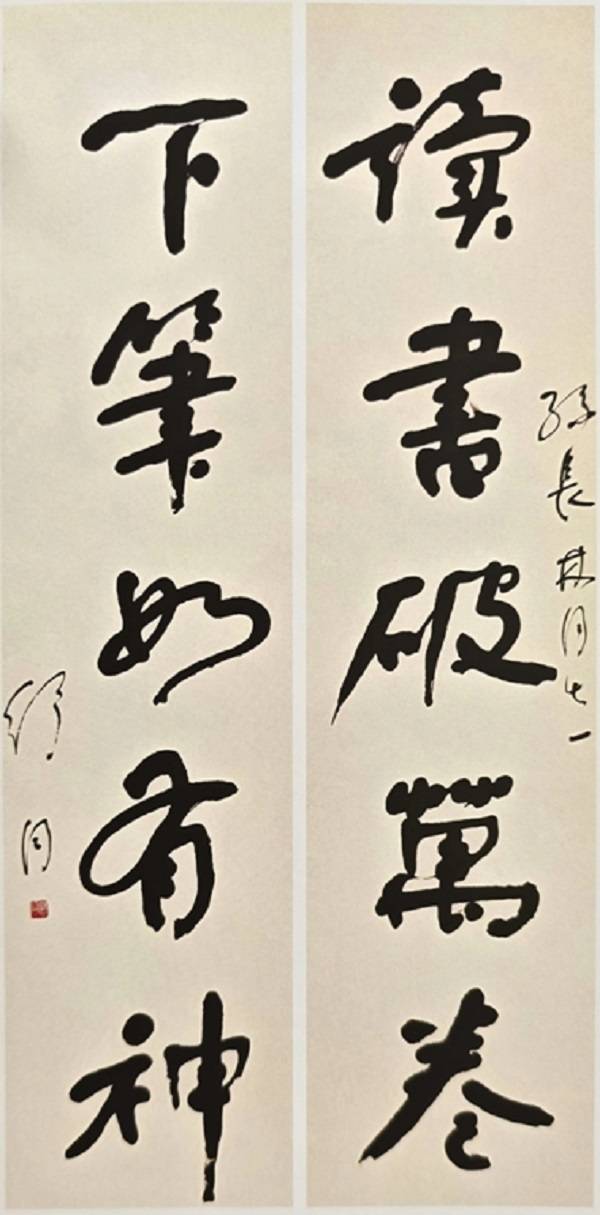 讀書破萬卷
孫長林同志
下筆如有神
舒同